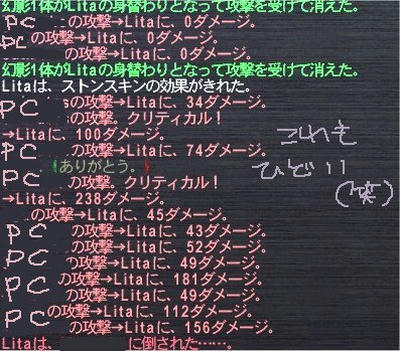 幻影1体がLitaの身替わりとなって攻撃を受けて消えた。
PC の攻撃→Litaに、0ダメージ。
の攻撃→Litaに、0ダメージ。
の攻撃→Litaに、0ダメージ。
幻影1体がLitaの身替わりとなって攻撃を受けて消えた。
Litaは、ストンスキンの効果がきれた。
PC sの攻撃→Litaに、34ダメージ。
の攻撃。クリティカル！
→Litaに、100ダメージ。
PC の攻撃→Litaに、74ダメージ。
ありがとう。
PC の攻撃。クリティカル！
→Litaに、238ダメージ。
の攻撃→Litaに、45ダメージ。
PC の攻撃→Litaに、43ダメージ。
の攻撃→Litaに、52ダメージ。
PC の攻撃→Litaに、49ダメージ。
PC の攻撃→Litaに、181ダメージ。
の攻撃→Litaに、49ダメージ。
PC の攻撃→Litaに、112ダメージ。
の攻撃→Litaに、156ダメージ。
Litaは、 に倒された……。
これも
ひどいい
(笑)